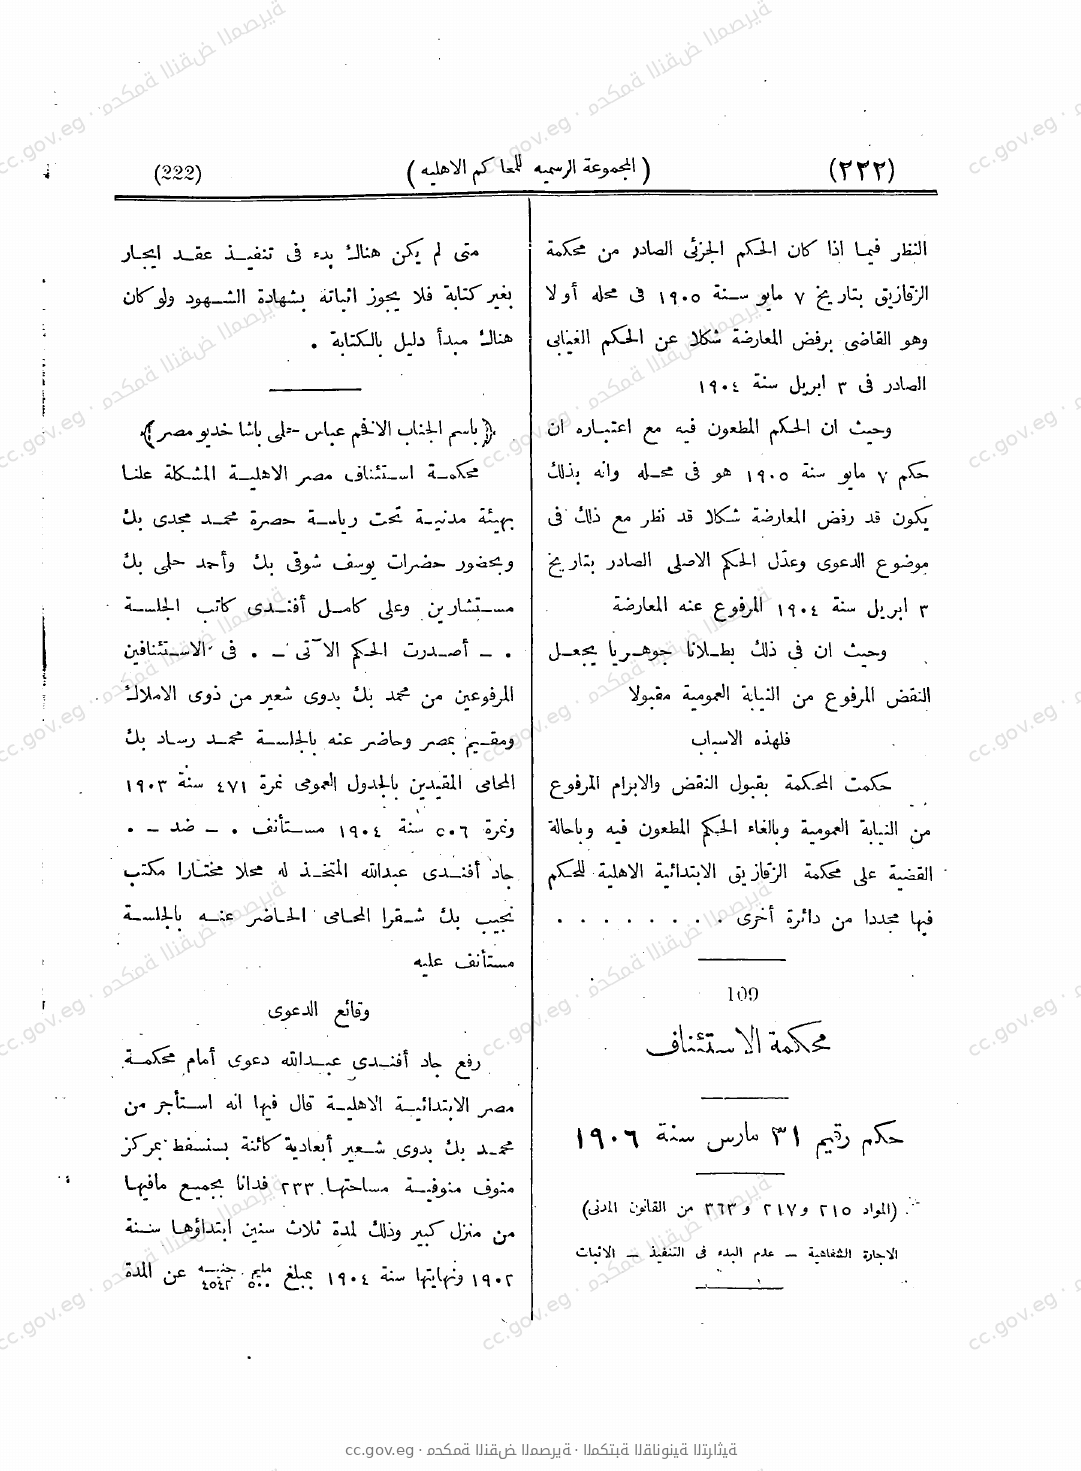 (٢٢٢)
(المجموعة الرسميه للمحاكم الاهليه)
(222)
النظر فيما اذا كان الحكم الجزئى الصادر من محكمة
الزقازيق بتاريخ ٧ مايو سنة ١٩٠٥ فى محله أولا
وهو القاضى برفض المعارضة شكلا عن الحكم الغيابى
الصادر فى ٣ ابريل سنة ١٩٠٤
وحيث ان الحكم المطعون فيه مع اعتباره ان
حكم ٧ مايو سنة ١٩٠٥ هو فى محله وانه بذلك
يكون قد رفض المعارضة شكلا قد نظر مع ذلك فى
موضوع الدعوى وعدّل الحكم الاصلى الصادر بتاريخ
٣ ابريل سنة ١٩٠٤ المرفوع عنه المعارضة
وحيث ان فى ذلك بطلانا جوهريا يجعل
النقض المرفوع من النيابة العمومية مقبولا
فلهذه الاسباب
حكمت المحكمة بقبول النقض والابرام المرفوع
من النيابة العمومية وبالغاء الحكم المطعون فيه وباحالة
القضية على محكمة الزقازيق الابتدائية الاهلية للحكم
فيها مجددا من دائرة أخرى . . . . . . . .
109
محكمة الاستئناف
حكم رقيم ٣١ مارس سنة ١٩٠٦
(المواد ٢١٥ و ٢١٧ و ٣٦٣ من القانون المدنى)
الاجارة الشفاهية – عدم البدء فى التنفيذ – الاثبات
متى لم يكن هناك بدء فى تنفيذ عقد ايجار
بغير كتابة فلا يجوز اثباته بشهادة الشهود ولو كان
هناك مبدأ دليل بالكتابة .
﴿باسم الجناب الافخم عباس حلمى باشا خديو مصر﴾
محكمة استئناف مصر الاهلية المشكلة علنا
بهيئة مدنية تحت رياسة حضرة محمد مجدى بك
وبحضور حضرات يوسف شوقى بك وأحمد حلمى بك
مستشارين وعلى كامل أفندى كاتب الجلسة
. – أصدرت الحكم الآتى – . فى الاستئنافين
المرفوعين من محمد بك بدوى شعير من ذوى الاملاك
ومقيم بمصر وحاضر عنه بالجلسة محمد رساد بك
المحامى المقيدين بالجدول العمومى نمرة ٤٧١ سنة ١٩٠٣
ونمرة ٥٠٦ سنة ١٩٠٤ مستأنف . – ضد – .
جاد أفندى عبدالله المتخذ له محلا مختارا مكتب
نجيب بك شقرا المحامى الحاضر عنه بالجلسة
مستأنف عليه
وقائع الدعوى
رفع جاد أفندى عبدالله دعوى أمام محكمة
مصر الابتدائية الاهلية قال فيها انه استأجر من
محمد بك بدوى شعير أبعادية كائنة بسنسفط بمركز
منوف منوفية مساحتها ٢٣٣ فدانا بجميع مافيها
من منزل كبير وذلك لمدة ثلاث سنين ابتداؤها سنة
١٩٠٢ ونهايتها سنة ١٩٠٤ بمبلغ مليم ٥٠٠ جنيه ٤٥٤٢ عن المدة
cc.gov.eg · محكمة النقض المصرية · المكتبة القانونية التراثية